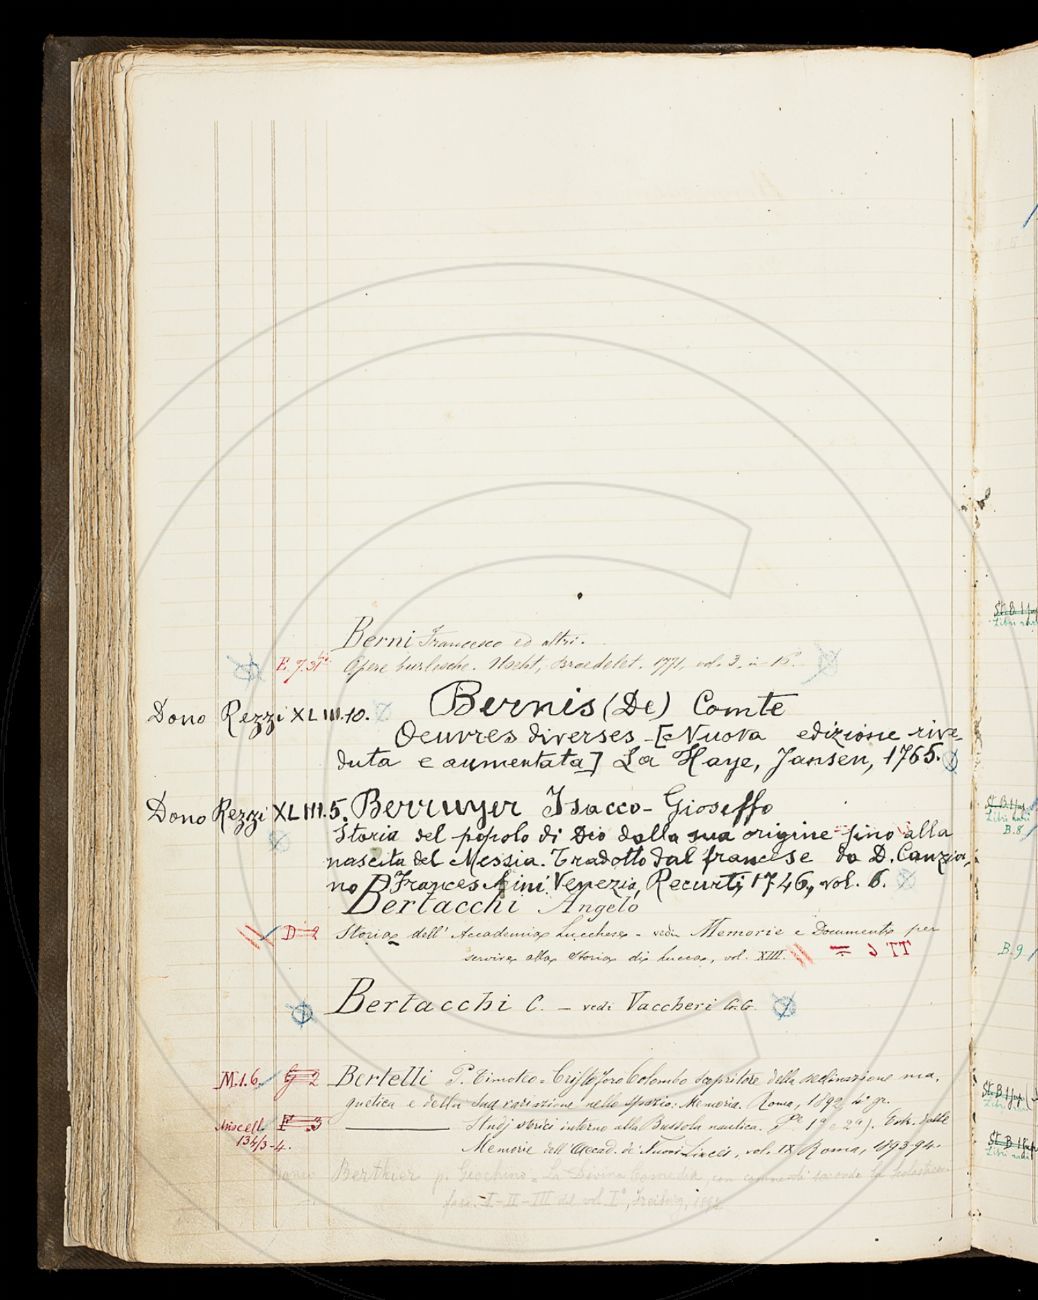 Berni Francesco ed altri.
E. 7. 31 Opere burlesche. Utecht, Broedelet. 1771, vol. 3. in 16.
Dono Rezzi XLIII.10. Bernis (De) Comte
Oeuvres diverses - [Nuova edizione rive
duta e aumentata] La Haye, Jansen, 1765.
Dono Rezzi XLIII.5. Berruyer Isacco-Gioseffo
Storia del popolo di Dio dalla sua origine fino alla
nascita del Messia. Tradotto dal francese da D. Canzia-
no Frances Venezia, Recurti, 1746, vol. 6.
Bertacchi Angelo
D 2 Storia dell' Accademia Lucchese - vedi Memorie e Documenti per
servire alla Storia di Lucca, vol. XIII.
Bertacchi C. - vedi Vaccheri G.G.
M.1.6. G 2 Bertelli P. Timoteo - Cristoforo Colombo scopritore della declinazione ma-
gnetica e della sua variazione nello spazio. Memoria. Roma, 1892, 4° gr.
Miscell. F. 3 Studj storici intorno alla Bussola nautica. P.e 1a e 2a). Estr. dalle
134/3-4. Memorie dell' Accad. dei Nuovi Lincei, vol. IX Roma, 1893-94.
Berthier p. Giachino - La Divina Comedia, con commenti secondo la scolastica
fasc. I-II-III del vol. I°, Freiburg, 1892
St. B 1
Libri
B.8
B.9
St. B 1
St B 1
Libri